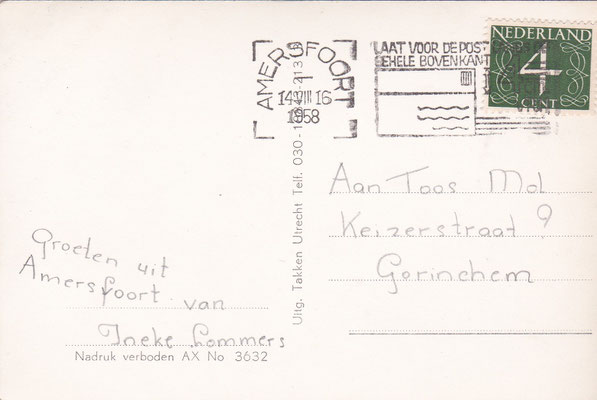 AMERSFOORT
1
14 VIII 16
1958
LAAT VOOR DE POST
GEHELE BOVENKANT
NEDERLAND
4
CENT
Aan Toos Mol
Keizerstraat 9
Gorinchem
Groeten uit
Amersfoort van
Ineke Lommers
Nadruk verboden AX No 3632
Uitg. Takken Utrecht Telf. 030-